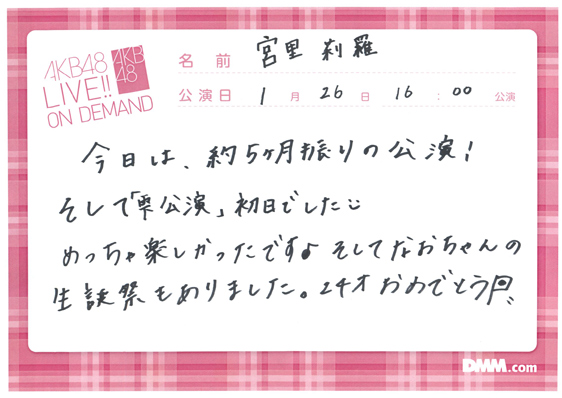 AKB48
LIVE!!
ON DEMAND
AKB
48
名前 宮里莉羅
公演日 1月26日 16:00 公演
今日は、約5ヶ月振りの公演!
そして「雫公演」初日でした
めっちゃ楽しかったです♪そしてなおちゃんの
生誕祭もありました。24才おめでとう
DMM.com